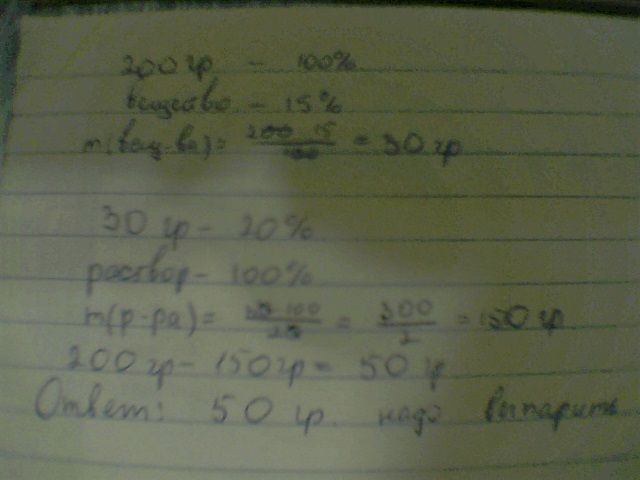 200 гр - 100%
вещество - 15%
m(вещ-ва) = 200·15/100 = 30 гр
30 гр - 20%
раствор - 100%
m(р-ра) = 30·100/20 = 300/2 = 150 гр
200 гр - 150 гр = 50 гр
Ответ: 50 гр. надо выпарить